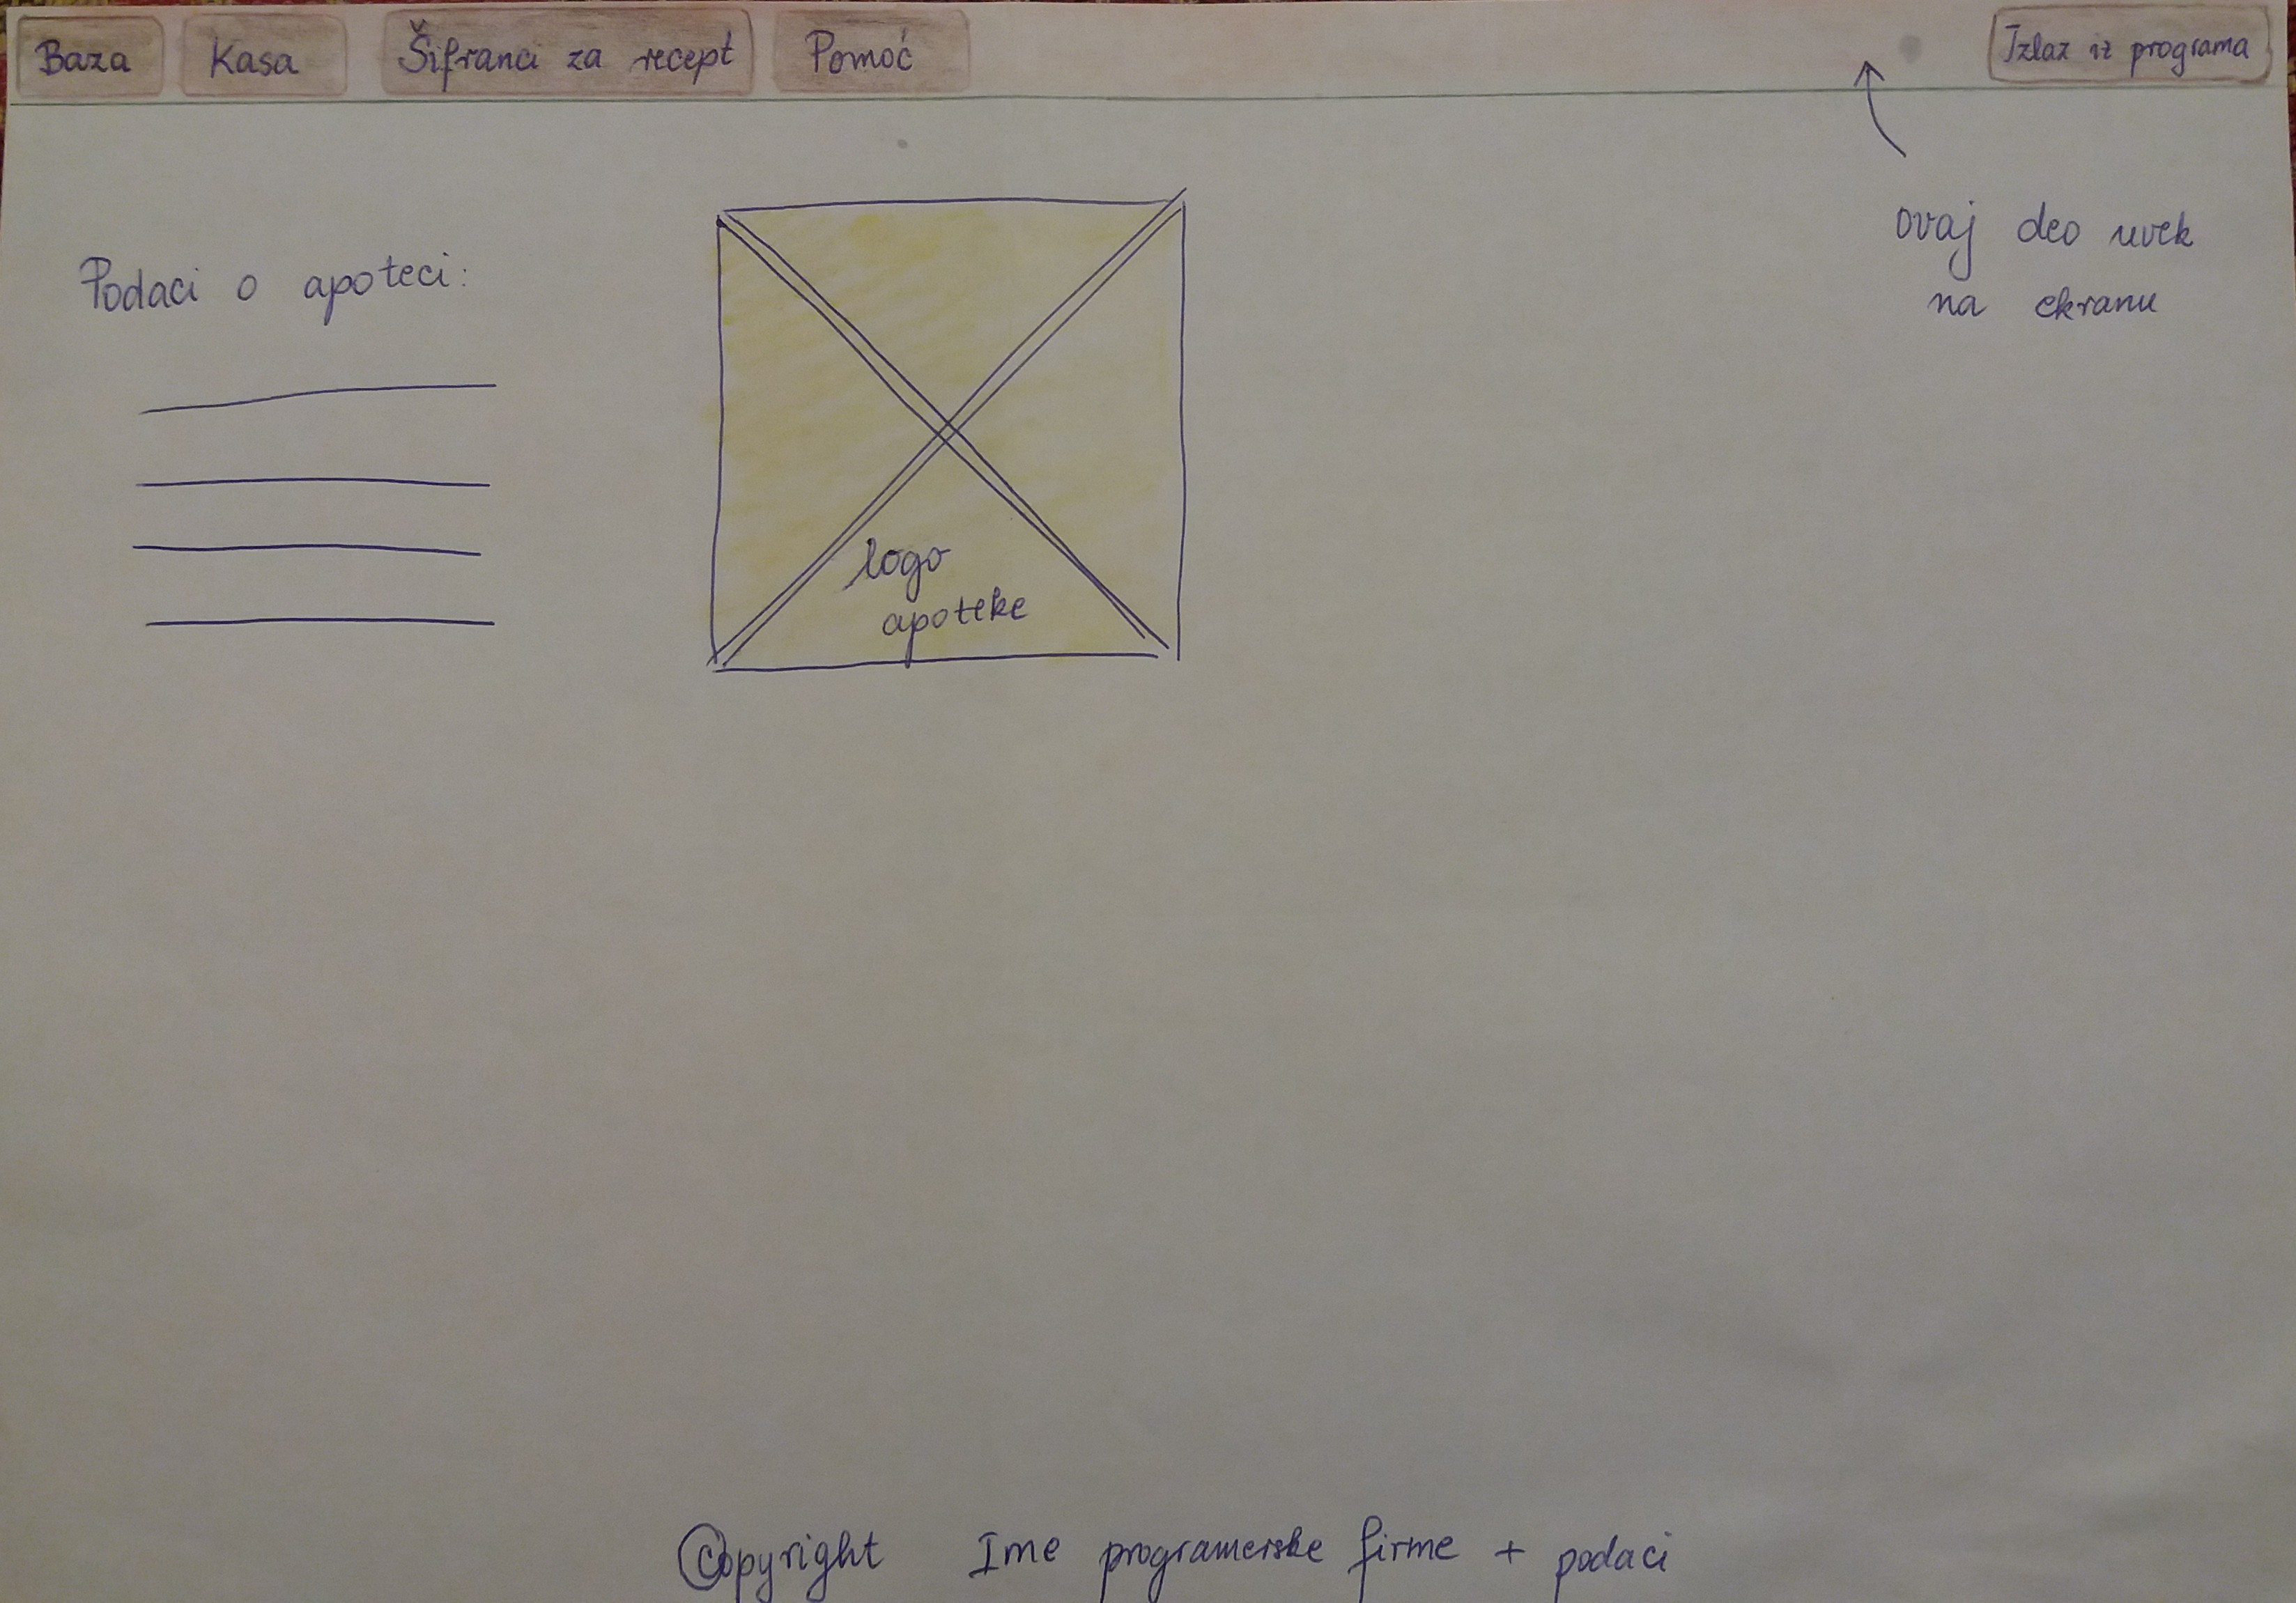 Baza Kasa Šifranci za recept Pomoć Izlaz iz programa
ovaj deo uvek
na ekranu
Podaci o apoteci:
logo
apoteke
©opyright Ime programerske firme + podaci